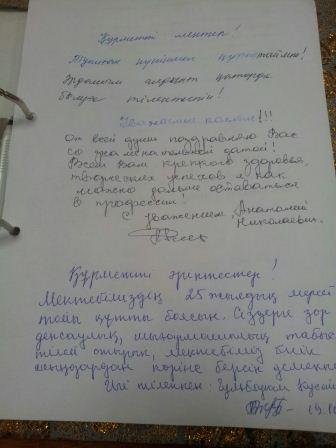 Құрметті мектеп!
Туылған күніңмен құттықтаймын!
алдыңғы қатарда
бірге тілектеспін!
Уважаемые коллеги!!!
От всей души поздравляю Вас
со знаменательной датой!
Всем Вам крепкого здоровья,
творческих успехов и как
можно дольше оставаться
в профессии!
С уважением, Анатолий
Николаевич.
Құрметті әріптестер!
Мектебіміздің 25 жылдық мерей
тойы құтты болсын. Сіздерге зор
денсаулық, шығармашылық табыс
тілей отырып, мектебіміз биік
шыңдардан көріне берсін демекпін
Игі тілекпен: